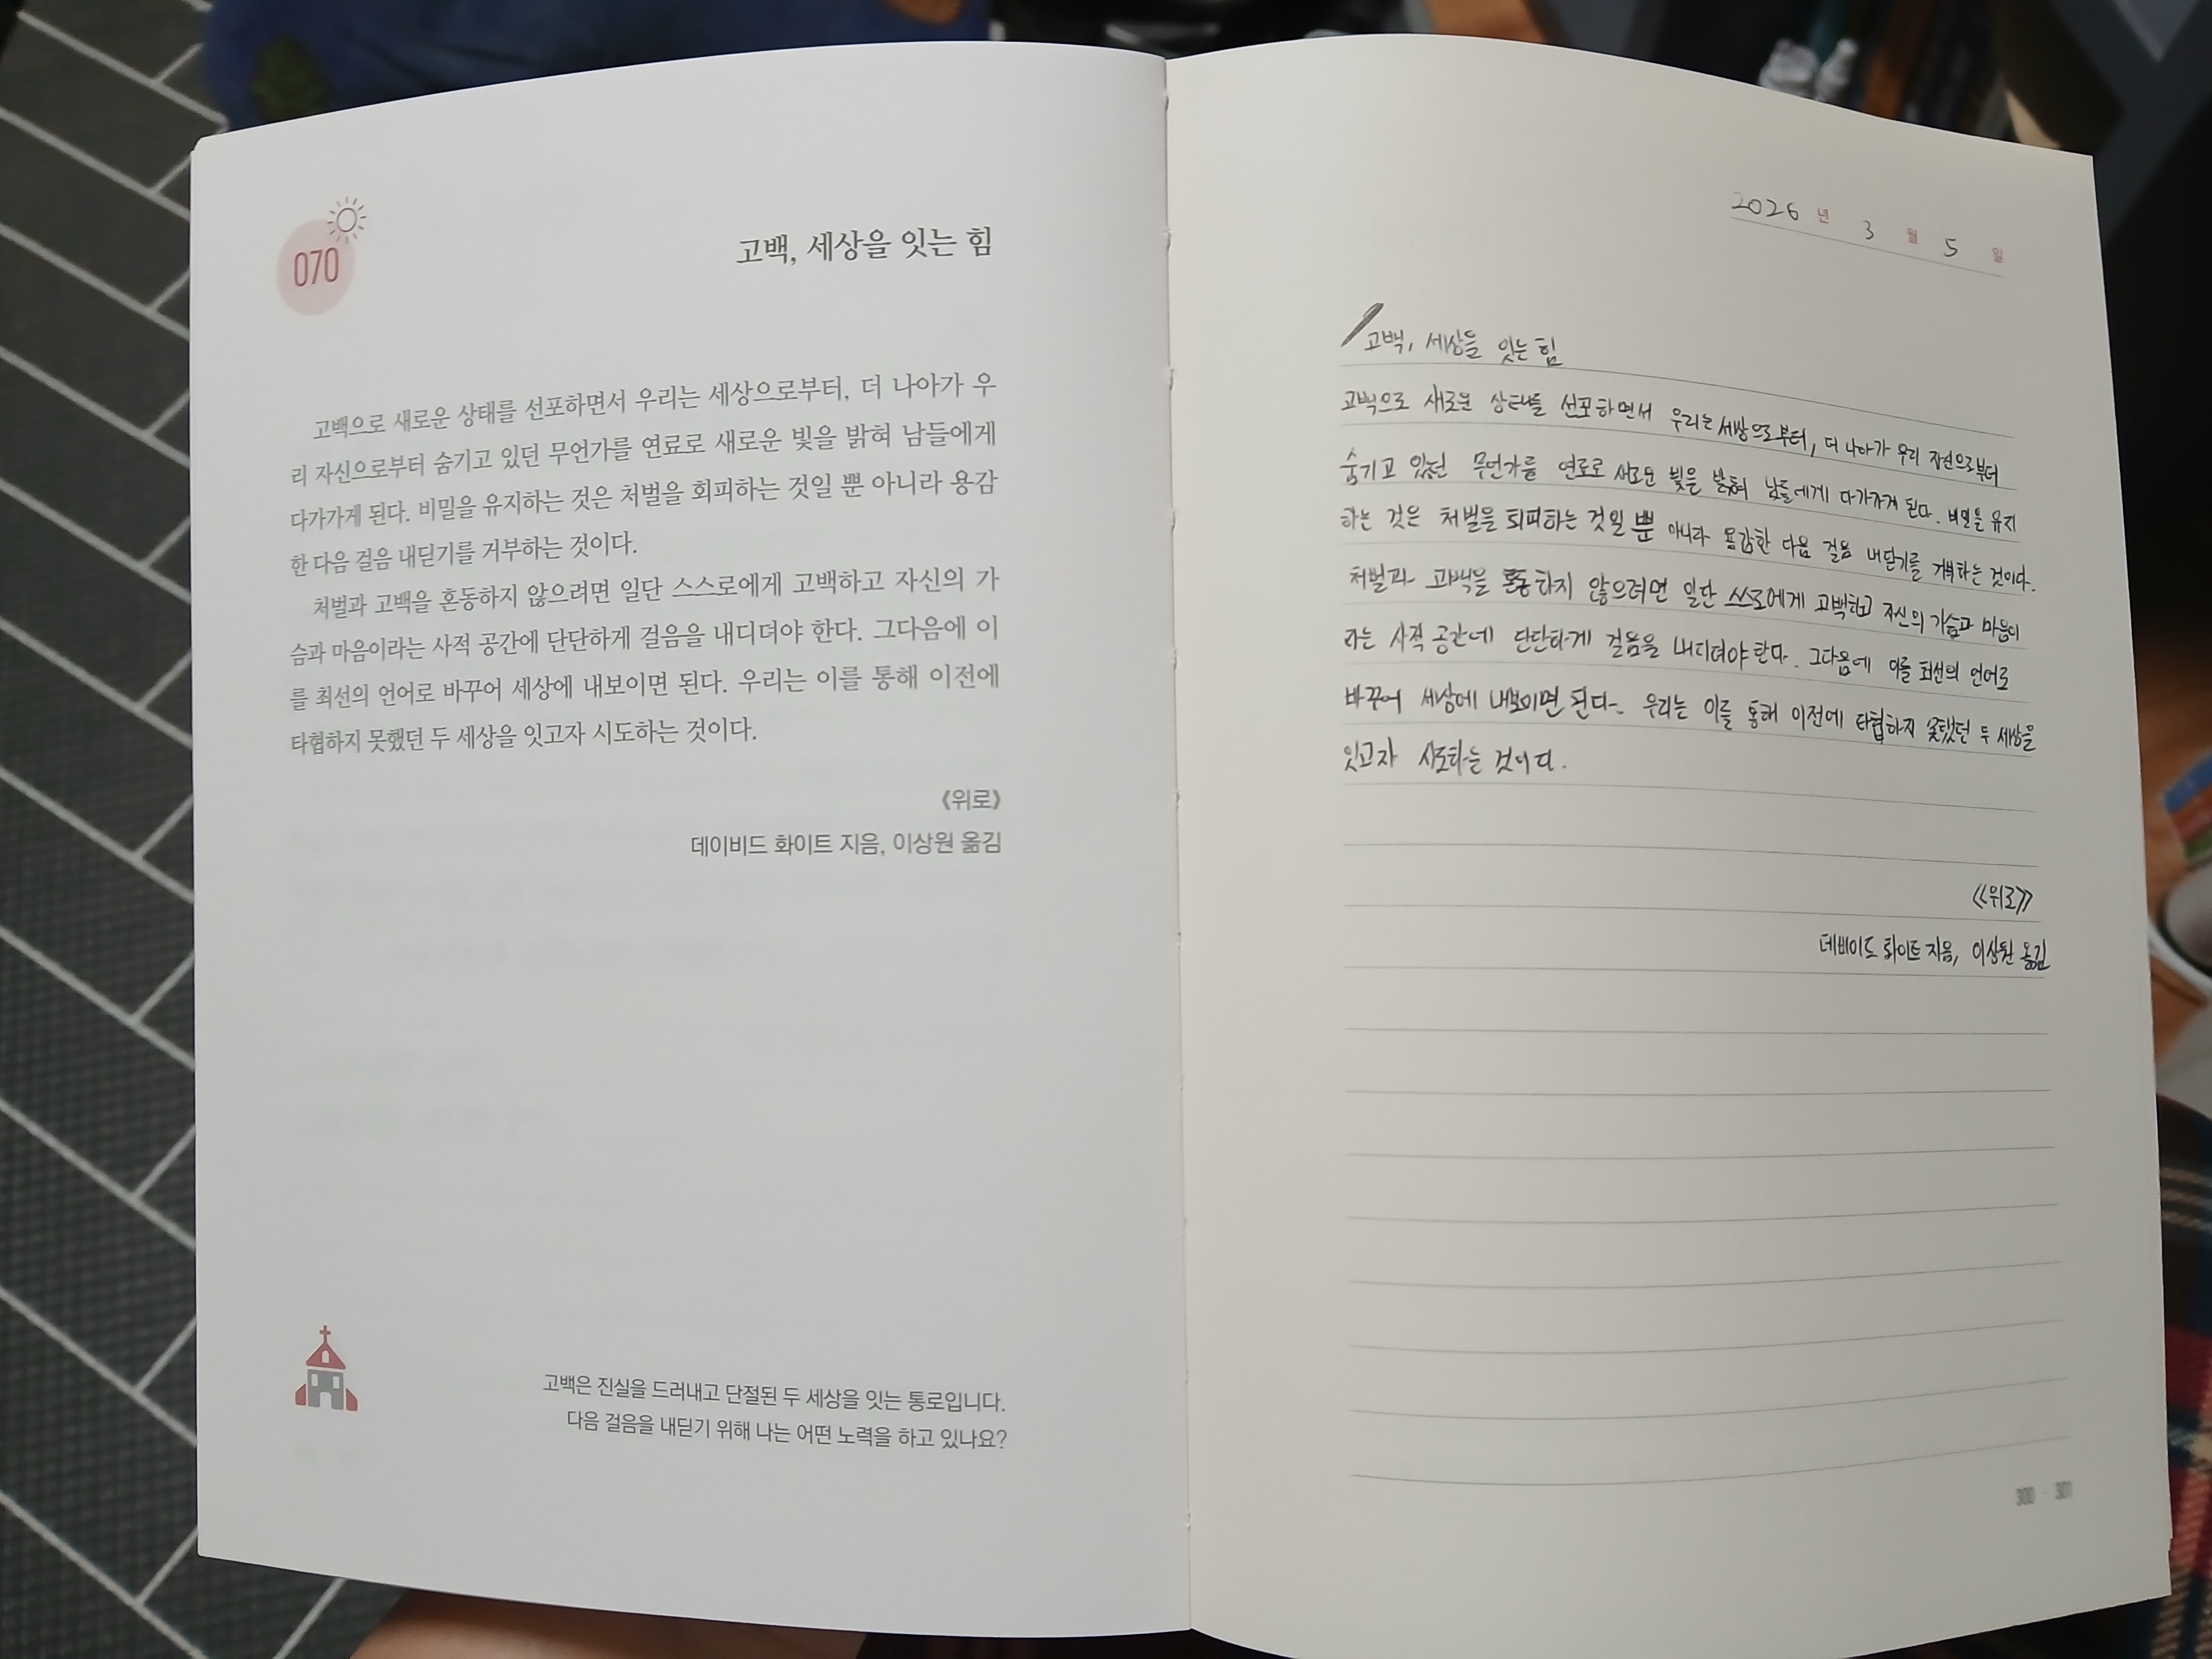 070
고백, 세상을 잇는 힘
고백으로 새로운 상태를 선포하면서 우리는 세상으로부터, 더 나아가 우
리 자신으로부터 숨기고 있던 무언가를 연료로 새로운 빛을 밝혀 남들에게
다가가게 된다. 비밀을 유지하는 것은 처벌을 회피하는 것일 뿐 아니라 용감
한 다음 걸음 내딛기를 거부하는 것이다.
처벌과 고백을 혼동하지 않으려면 일단 스스로에게 고백하고 자신의 가
슴과 마음이라는 사적 공간에 단단하게 걸음을 내디뎌야 한다. 그다음에 이
를 최선의 언어로 바꾸어 세상에 내보이면 된다. 우리는 이를 통해 이전에
타협하지 못했던 두 세상을 잇고자 시도하는 것이다.
《위로》
데이비드 화이트 지음, 이상원 옮김
고백은 진실을 드러내고 단절된 두 세상을 잇는 통로입니다.
다음 걸음을 내딛기 위해 나는 어떤 노력을 하고 있나요?
2026 년 3 월 5 일
고백, 세상을 잇는 힘
고백으로 새로운 상태를 선포하면서 우리는 세상으로부터, 더 나아가 우리 자신으로부터
숨기고 있던 무언가를 연료로 새로운 빛을 밝혀 남들에게 다가가게 된다. 비밀을 유지
하는 것은 처벌을 회피하는 것일 뿐 아니라 용감한 다음 걸음 내딛기를 거부하는 것이다.
처벌과 고백을 혼동하지 않으려면 일단 스스로에게 고백하고 자신의 가슴과 마음이
라는 사적 공간에 단단하게 걸음을 내디뎌야 한다. 그다음에 이를 최선의 언어로
바꾸어 세상에 내보이면 된다. 우리는 이를 통해 이전에 타협하지 못했던 두 세상을
잇고자 시도하는 것이다.
《위로》
데비이드 화이트 지음, 이상원 옮김
300 · 301